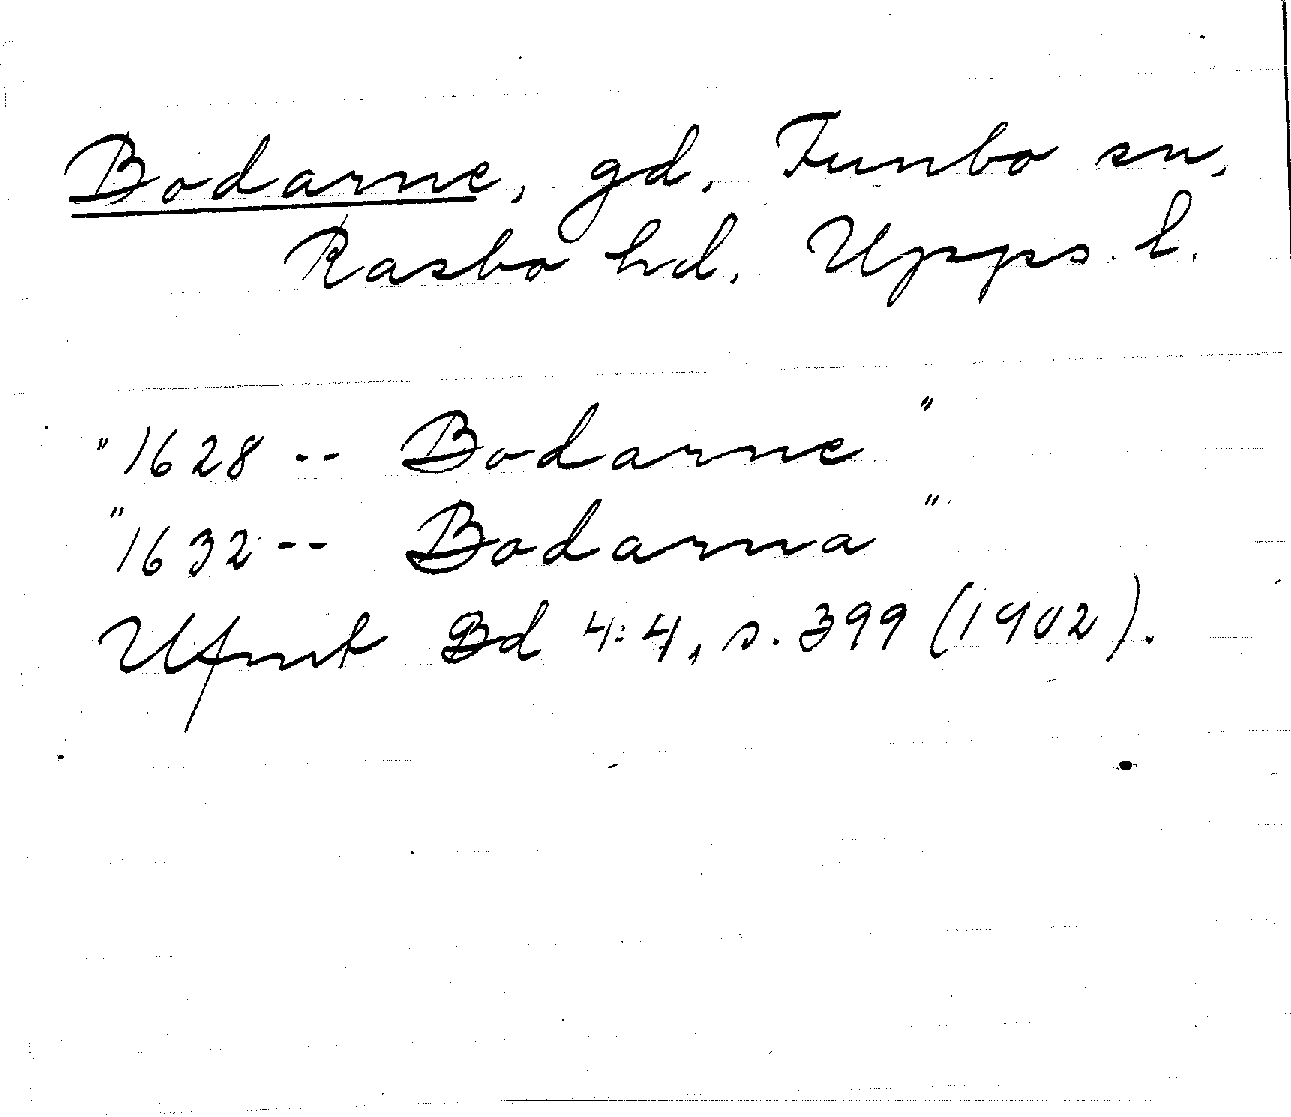 Bodarne, gd, Funbo sn,
Rasbo hd, Upps. l.
"1628 -- Bodarne"
"1632 -- Bodarna"
Ufmt Bd 4:4, s. 399 (1902).